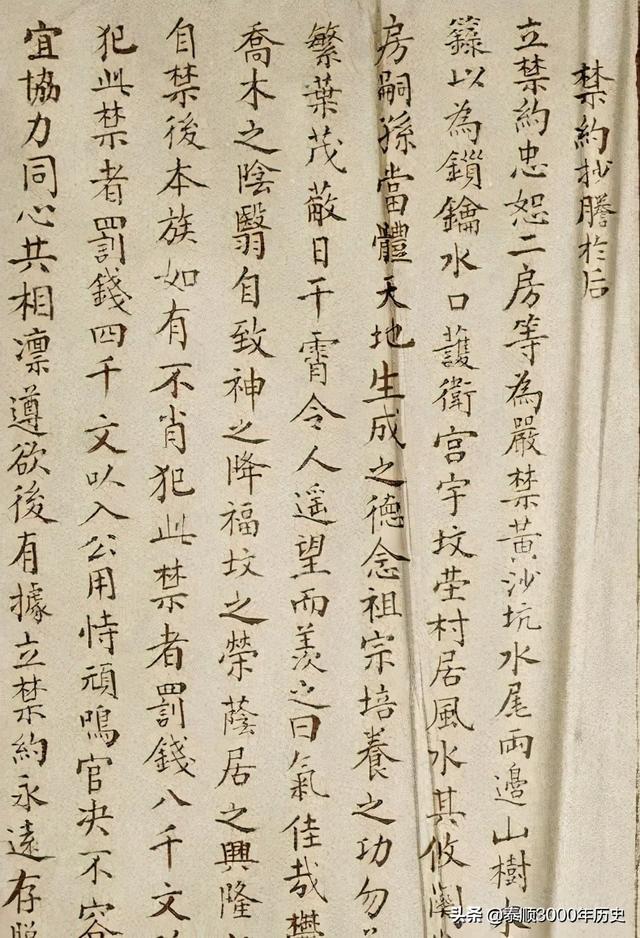 禁約抄謄於后
立禁約忠恕二房等為嚴禁黃沙坑水尾兩邊山樹木
籙以為鎖鑰水口護衛宮宇坟塋村居風水其攸関
房嗣孫當體天地生成之德念祖宗培養之功勿
繁葉茂蔽日干霄令人遥望而羨之曰氣佳哉欝
喬木之陰翳自致神之降福坟之榮蔭居之興隆
自禁後本族如有不肖犯此禁者罰錢八千文
犯此禁者罰錢四千文以入公用恃頑鳴官决不容
宜協力同心共相凛遵欲後有據立禁約永遠存照
头条 @泰顺3000年历史